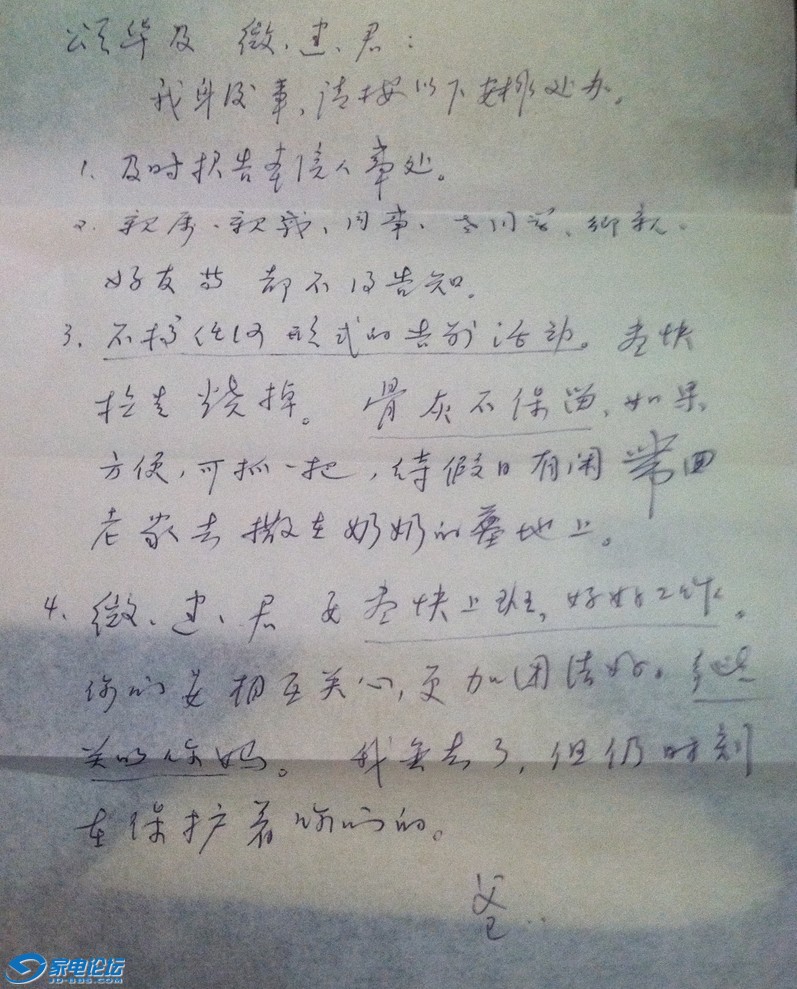 颂华及 微、建、君：
我身后事，请按以下安排处办。
1、及时报告本院人事处。
2、亲属、亲戚、同事、老同学、乡亲、
好友等 都不得告知。
3、不搞任何形式的告别活动。尽快
拉走烧掉。 骨灰不保留，如果
方便，可抓一把，待假日有闲带回
老家去撒在奶奶的墓地上。
4、微、建、君 要尽快上班，好好工作。
你们要相互关心，更加团结好。
你妈。 我走了，但仍时刻
在保护着你们的。
父
家电论坛
JD-BBS.COM